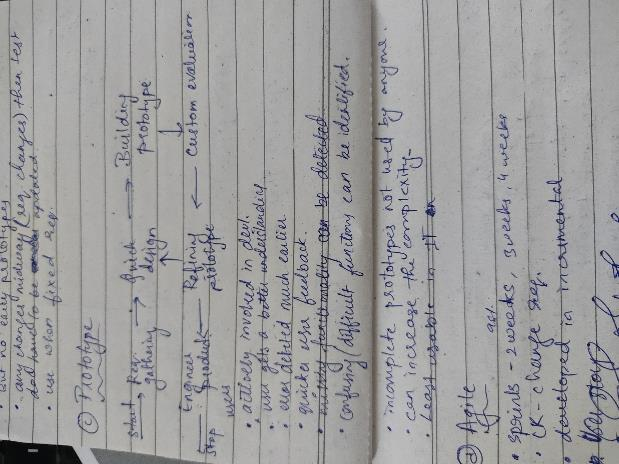 but no early prototypes
• any changes midway (req changes) then test
had to be updated
• use when fixed req.
(c) Prototype
start → Req. gathering → Quick design → Building prototype
Engineer product ← Refining prototype ← Custom evaluation
stop
users
• actively involved in devl.
• user gets a better understanding
• error detected much earlier
• quicker user feedback.
• missing functionality can be detected
• confusing / difficult functions can be identified.
• incomplete prototypes not used by anyone.
• can increase the complexity.
• Least usable in
(d) Agile
• sprints - 2 weeks, 3 weeks, 4 weeks
• CR - change req.
• developed in incrimental